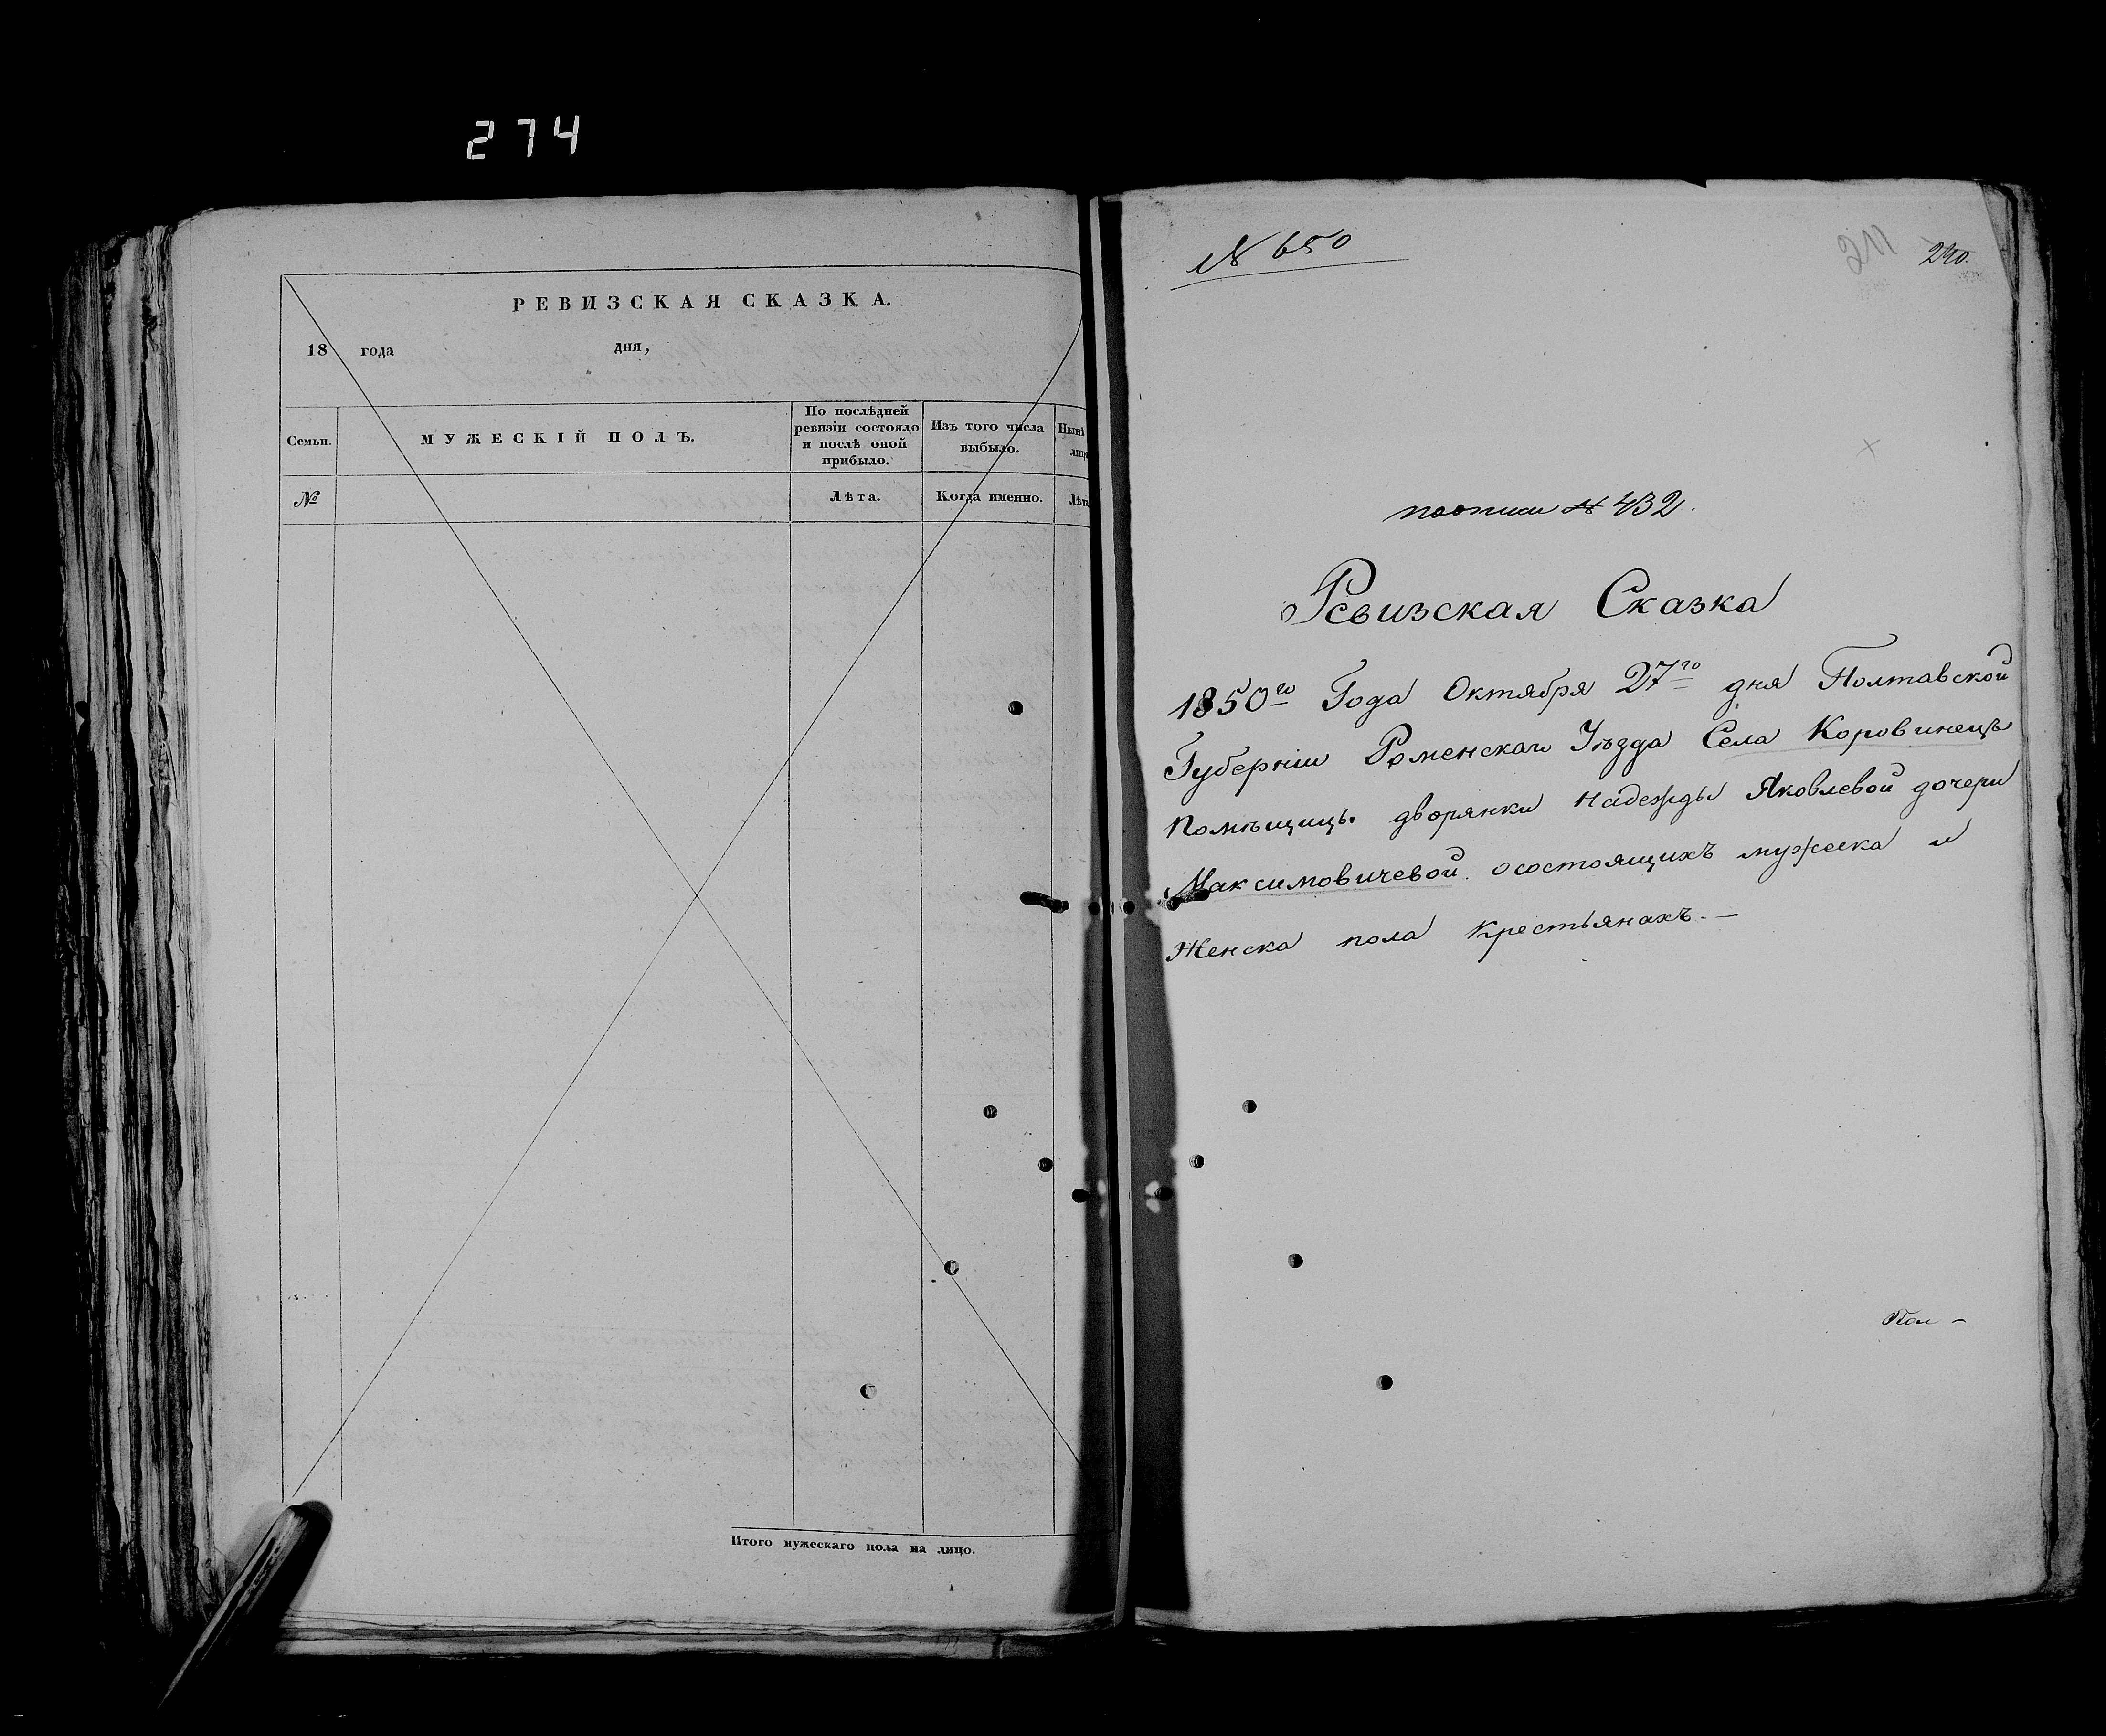 274
РЕВИЗСКАЯ СКАЗКА.
18 года дня,
Семьи.
МУЖЕСКІЙ ПОЛЪ.
По послѣдней
ревизіи состояло
и послѣ оной
прибыло.
Изъ того числа
выбыло.
Нынѣ
лицо
№
Лѣта.
Когда именно.
Лѣта
Итого мужескаго пола на лицо.
№ 650
211
240.
поописи № 432.
Ревизская Сказка
1850го Года Октября 27го дня Полтавской
Губерніи Роменскаго Уѣзда Села Коровинецъ
Помѣщицы дворянки Надежды Яковлевой дочери
Максимовичевой. осостоящихъ мужеска и
Женска пола Крестьянахъ.—
Пол -